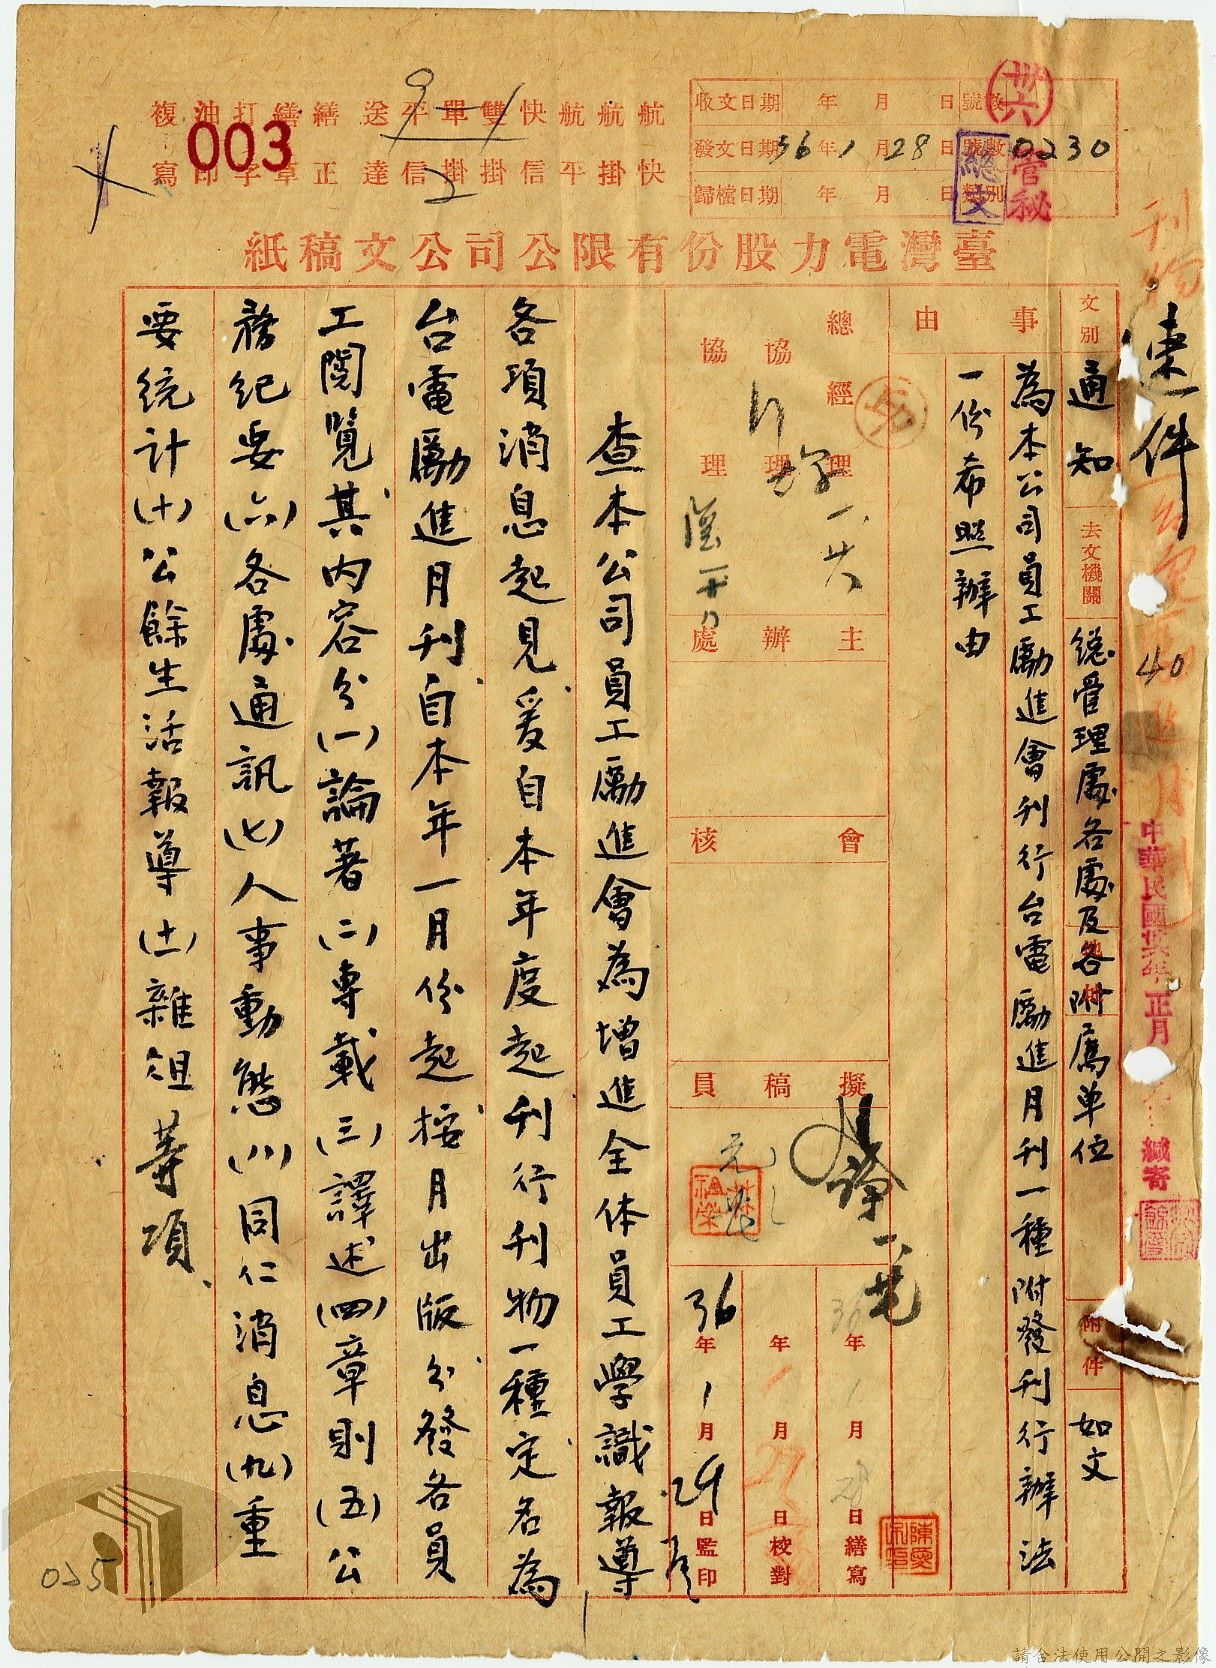 航航航快雙單平送繕繕打油複
快掛平信掛掛信達正章字印寫
003
收文日期 年 月 日
發文日期 36年1月28日 0230
歸檔日期 年 月 日
管秘
總文
臺灣電力股份有限公司公文稿紙
速件
40
中華民國卅六年正月
緘寄
文別 通知
去文機關 總管理處各處及各附屬单位
附件 如文
事由
為本公司員工勵進會刊行台電勵進月刊一種附發刊行辦法
一份希照辦由
總經理
協理
協理
主辦處
會核
擬稿員
年1月 日繕寫
年1月29日校對
36年1月29日監印
查本公司員工勵進會為增進全体員工學識報導
各項消息起見爰自本年度起刊行刊物一種定名為
台電勵進月刊自本年一月份起按月出版分發各員
工閱覽其内容分(一)論著(二)專載(三)譯述(四)章則(五)公
務紀要(六)各處通訊(七)人事動態(八)同仁消息(九)重
要統計(十)公餘生活報導(十一)雜俎等項
025
請合法使用公開之影像